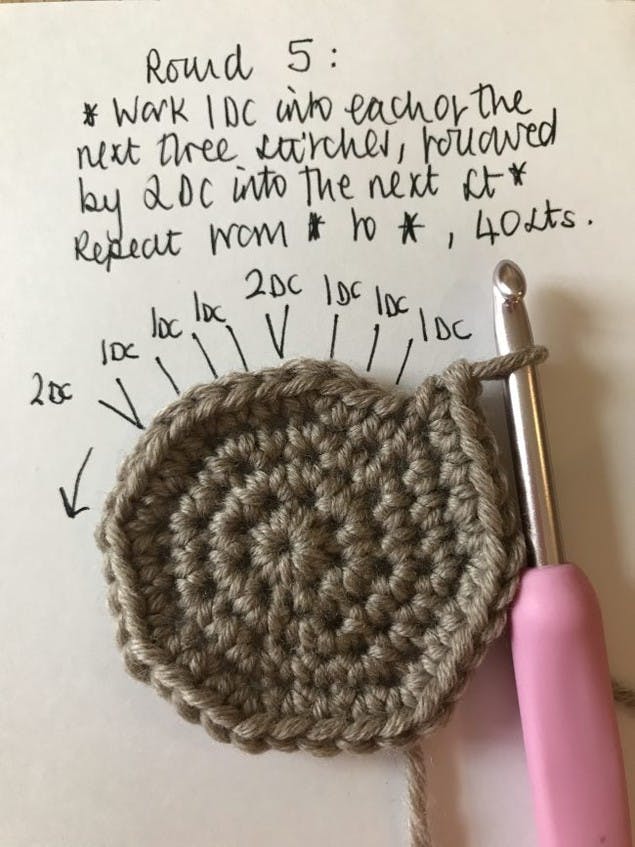 Round 5:
* Work 1DC into each of the
next three stitches, followed
by 2DC into the next st *
Repeat from * to *, 40sts.
2DC 1DC 1DC 1DC 2DC 1DC 1DC 1DC